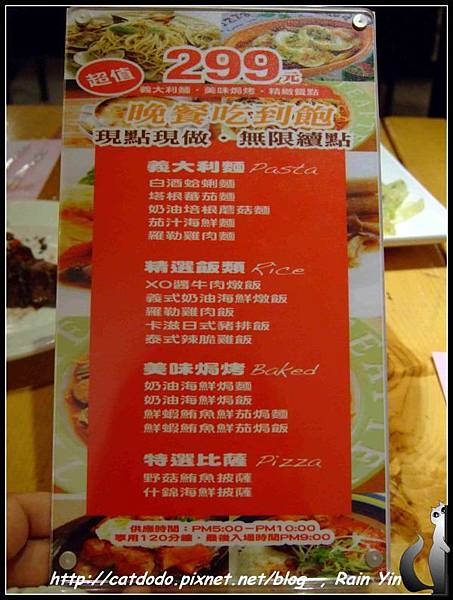 超值 299元
義大利麵·美味焗烤·精緻餐點
晚餐吃到飽
現點現做·無限續點
義大利麵 Pasta
白酒蛤蜊麵
塔根蕃茄麵
奶油培根蘑菇麵
茄汁海鮮麵
羅勒雞肉麵
精選飯類 Rice
XO醬牛肉燉飯
義式奶油海鮮燉飯
羅勒雞肉飯
卡滋日式豬排飯
泰式辣脆雞飯
美味焗烤 Baked
奶油海鮮焗麵
奶油海鮮焗飯
鮮蝦鮪魚鮮茄焗麵
鮮蝦鮪魚鮮茄焗飯
特選比薩 Pizza
野菇鮪魚披薩
什錦海鮮披薩
供應時間：PM5:00－PM10:00
享用120分鐘，最後入場時間PM9:00
http://catdodo.pixnet.net/blog , Rain Yin